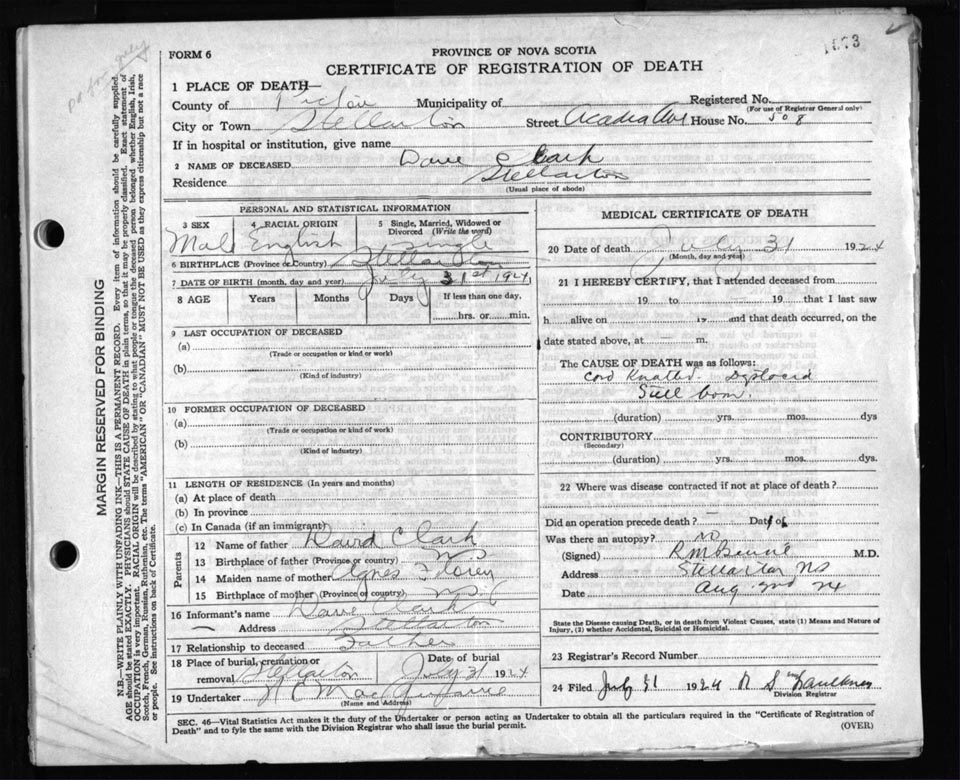 FORM 6
PROVINCE OF NOVA SCOTIA
CERTIFICATE OF REGISTRATION OF DEATH
1 PLACE OF DEATH—
County of Pictou Municipality of Registered No.
(For use of Registrar General only)
City or Town Stellarton Street Acadia Ave House No. 508
If in hospital or institution, give name
2 NAME OF DECEASED Dave Clark
Residence Stellarton
(Usual place of abode)
PERSONAL AND STATISTICAL INFORMATION
3 SEX 4 RACIAL ORIGIN 5 Single, Married, Widowed or Divorced (Write the word)
Male English Single
6 BIRTHPLACE (Province or Country) Stellarton
7 DATE OF BIRTH (month, day and year) July 31st 1924
8 AGE Years Months Days If less than one day,
hrs. or min.
9 LAST OCCUPATION OF DECEASED
(a)
(Trade or occupation or kind or work)
(b)
(Kind of industry)
10 FORMER OCCUPATION OF DECEASED
(a)
(Trade or occupation or kind of work)
(b)
(Kind of industry)
11 LENGTH OF RESIDENCE (In years and months)
(a) At place of death
(b) In province
(c) In Canada (if an immigrant)
Parents
12 Name of father David Clark
13 Birthplace of father (Province or country) N.S.
14 Maiden name of mother Agnes Florey
15 Birthplace of mother (Province or country) N.S.
16 Informant's name Dave Clark
Address Stellarton
17 Relationship to deceased Father
18 Place of burial, cremation or removal Stellarton Date of burial July 31 1924
19 Undertaker
(Name and Address)
MEDICAL CERTIFICATE OF DEATH
20 Date of death July 31 1924
(Month, day and year)
21 I HEREBY CERTIFY, that I attended deceased from
19 to 19 that I last saw
h alive on 19 and that death occurred, on
date stated above, at — m.
The CAUSE OF DEATH was as follows:
Cord Knotted
Still born.
(duration) yrs. mos. dys
CONTRIBUTORY
(Secondary)
(duration) yrs. mos. dys.
22 Where was disease contracted if not at place of death?
Did an operation precede death? — Date of
Was there an autopsy? NO
(Signed) M.D.
Address Stellarton NS
Date Aug 2nd 24
State the Disease causing Death, or in death from Violent Causes, state (1) Means and Nature of Injury, (2) whether Accidental, Suicidal or Homicidal.
23 Registrar's Record Number
24 Filed July 31 1924 R S Faulkner
Division Registrar
SEC. 46—Vital Statistics Act makes it the duty of the Undertaker or person acting as Undertaker to obtain all the particulars required in the "Certificate of Registration of
Death" and to fyle the same with the Division Registrar who shall issue the burial permit. (OVER)
MARGIN RESERVED FOR BINDING
N.B.—WRITE PLAINLY WITH UNFADING INK—THIS IS A PERMANENT RECORD. Every item of information should be carefully supplied.
AGE should be stated EXACTLY. PHYSICIANS should STATE CAUSE OF DEATH in plain terms, so that it may be properly classified. Exact statement of
OCCUPATION is very important. RACIAL ORIGIN will be described by stating to what people or tongue the deceased person belonged, whether English, Irish,
Scotch, French, German, Russian, Ruthenian, etc. The terms "AMERICAN" or "CANADIAN" MUST NOT BE USED as they express citizenship but not a race
or people. See instructions on back of Certificate.